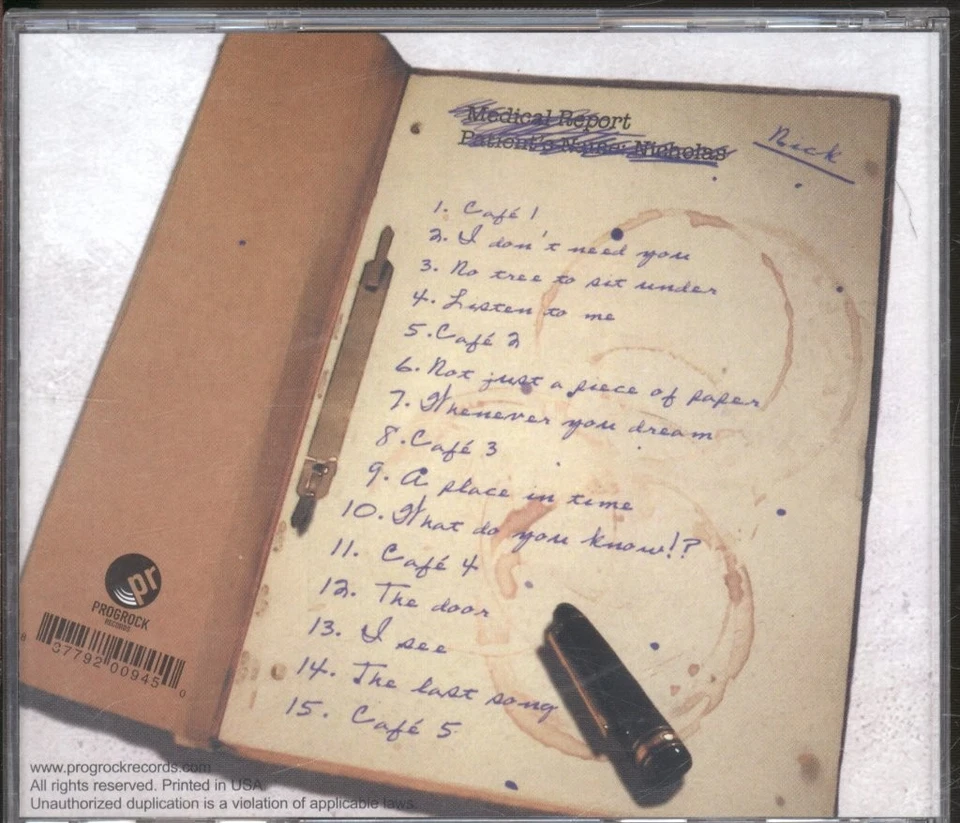 Medical Report
Patient's Name: Nicholas
Nick
1. Café 1
2. I don't need you
3. No tree to sit under
4. Listen to me
5. Café 2
6. Not just a piece of paper
7. Whenever you dream
8. Café 3
9. A place in time
10. What do you know!?
11. Café 4
12. The door
13. I see
14. The last song
15. Café 5
pr
PROGROCK
RECORDS
37792 00945 0
www.progrockrecords.com
All rights reserved. Printed in USA
Unauthorized duplication is a violation of applicable laws.